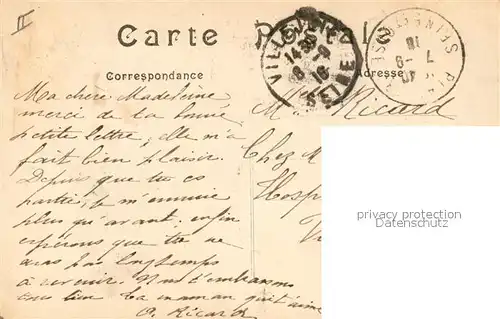 II
Carte Postale
Correspondance
Adresse
VILLEJUIF
14 30
8 - 9
16
SEINE
Ma chère Madeleine
merci de la bonne
petite lettre, elle m'a
fait bien plaisir.
Depuis que tu es
partie, je m'ennuie
plus qu'avant, enfin
espérons que tu ne
seras pas longtemps
à revenir. Nous t'embrassons
tous bien ta maman qui t'aime
Ricard
M Ricard
Chez M
Hosp
privacy protection
www.ansichtskarten-center.de